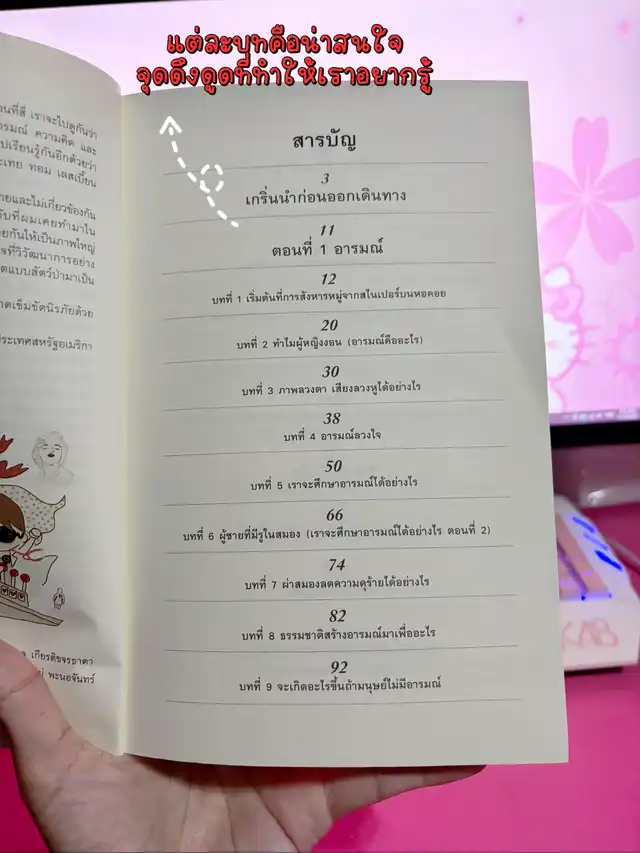 แต่ละบทคือน่าสนใจ
จุดดึงดูดที่ทำให้เราอยากรู้
อนที่สี่ เราจะไปดูกันว่า
ารมณ์ ความคิด และ
ปเรียนรู้กันอีกด้วยว่า
ะเทย ทอม เลสเบี้ยน
ายและไม่เกี่ยวข้องกัน
ับที่ผมเคยทำมาใน
ยกันให้เป็นภาพใหญ่
จที่วิวัฒนาการอย่าง
ตแบบสัตว์ป่ามาเป็น
าดเข็มขัดนิรภัยด้วย
ระเทศสหรัฐอเมริกา
ล เกียรติขจรธาดา
พะนอจันทร์
สารบัญ
3
เกริ่นนำก่อนออกเดินทาง
11
ตอนที่ 1 อารมณ์
12
บทที่ 1 เริ่มต้นที่การสังหารหมู่จากสไนเปอร์บนหอคอย
20
บทที่ 2 ทำไมผู้หญิงงอน (อารมณ์คืออะไร)
30
บทที่ 3 ภาพลวงตา เสียงลวงหูได้อย่างไร
38
บทที่ 4 อารมณ์ลวงใจ
50
บทที่ 5 เราจะศึกษาอารมณ์ได้อย่างไร
66
บทที่ 6 ผู้ชายที่มีรูในสมอง (เราจะศึกษาอารมณ์ได้อย่างไร ตอนที่ 2)
74
บทที่ 7 ผ่าสมองลดความดุร้ายได้อย่างไร
82
บทที่ 8 ธรรมชาติสร้างอารมณ์มาเพื่ออะไร
92
บทที่ 9 จะเกิดอะไรขึ้นถ้ามนุษย์ไม่มีอารมณ์
KAB